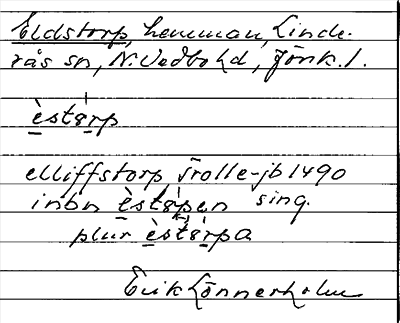 Eldstorp, hemman, Linde-
rås sn, N. Vedbo hd, Jönk. l.
èstərp
elliffstorp Trolle-jb 1490
inbn èstərpen sing.
plur èstərpa
Erik Lönnerholm